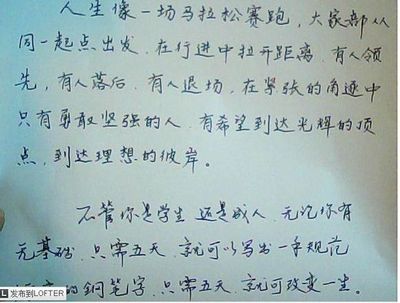 人生像一场马拉松赛跑,大家都从
同一起点出发.在行进中拉开距离.有人领
先,有人落后.有人退场,在紧张的角逐中
只有勇敢坚强的人.有希望到达光辉的顶
点,到达理想的彼岸。
不管你是学生 还是成人.无论你有
无基础.只需五天.就可以写出一手规范
的钢笔字.只需五天.就可改变一生。
发布到LOFTER